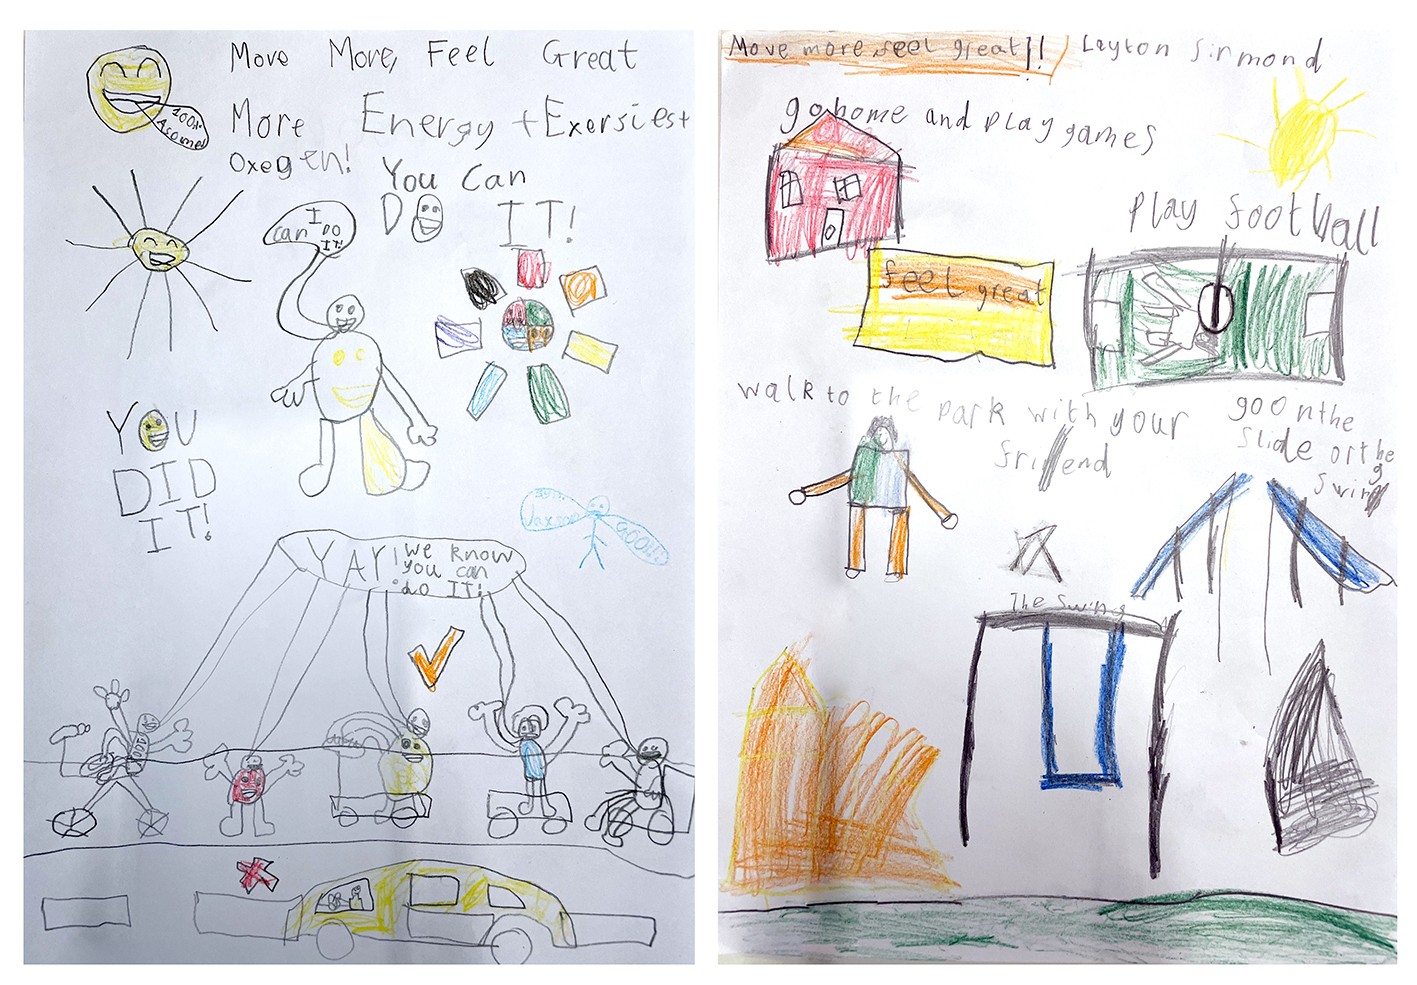 Move More, Feel Great
100% Asome!
More Energy + Exersiest
Oxegen!
You Can
DO IT!
I
can DO
IT!
YOU
DID
IT!
By:
Jaxon
GOO!!!
YAY! we know
you can
do IT!
Move more feel great!!
Layton Sirmond
go home and play games
Play football
feel great
walk to the park with your
friend
go on the
slide or the
swing
The swing